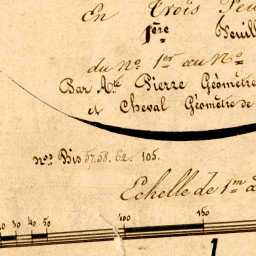 En Trois Feuil
1ère Feuill
du No 1er au No
Par Ate Pierre Géomètre
et Cheval Géomètre de
nos Bis 57. 58. 62. 105.
Echelle de 1m à
10 30 40 50 100 150
1